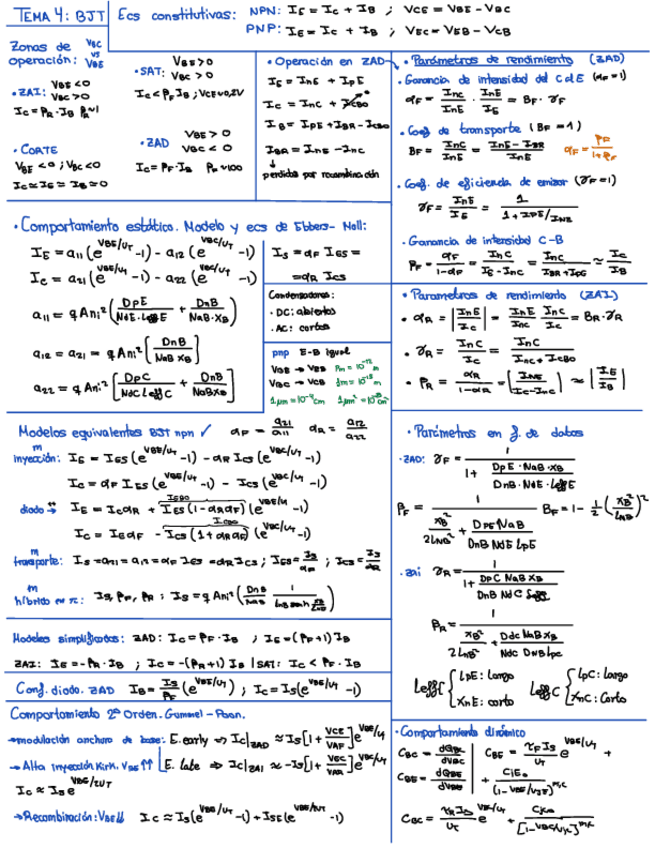 TEMA 4: BJT
Ecs constitutivas: NPN: IE = IC + IB ; VCE = VBE - VBC
PNP: IE = IC + IB ; VEC = VEB - VCB
Zonas de operación: VBC vs VBE
· ZAI: VBE < 0 VBC > 0
IC = βR·IB βR≈1
· CORTE
VBE < 0 ; VBC < 0
IC ≈ IE ≈ IB ≈ 0
· SAT: VBE > 0 VBC > 0
IC < βF IB ; VCE ≈ 0,2V
· ZAD VBE > 0 VBC < 0
IC = βF·IB βF ≈ 100
· Operación en ZAD
IE = InE + IpE
IC = InC + ICBO
IB = IpE + IBR - ICBO
IBR = InE - InC
↓
perdidas por recombinación
· Parámetros de rendimiento (ZAD)
· Ganancia de intensidad del C al E (αF = 1)
αF = InC/InE · InE/IE = BF · γF
· Coef. de transporte (BF = 1)
BF = InC/InE = (InE - IBR)/InE αF = βF/(1+βF)
· Coef. de eficiencia de emisor (γF = 1)
γF = InE/IE = 1/(1 + IPE/INE)
· Ganancia de intensidad C-B
βF = αF/(1-αF) = InC/(IE - InC) = InC/(IBR + IpE) ≈ IC/IB
· Comportamiento estático. Modelo y ecs de Ebbers-Moll:
IE = a11 (e^(VBE/UT) - 1) - a12 (e^(VBC/UT) - 1)
IC = a21 (e^(VBE/UT) - 1) - a22 (e^(VBC/UT) - 1)
a11 = qAni² [DpE/(NdE·LeffE) + DnB/(NaB·XB)]
a12 = a21 = qAni² [DnB/(NaB XB)]
a22 = qAni² [DpC/(NdC LeffC) + DnB/(NaB XB)]
IS = αF IES =
= αR ICS
Condensadores:
· DC: abiertos
· AC: cortos
pnp E-B igual
VBE → VEB
VBC → VCB
1µm = 10^-4 cm
· Parametros de rendimiento (ZAI)
· αR = |InE/IC| = InE/InC InC/IC = BR·γR
· γR = InC/IC = InC/(InC + ICBO)
· βR = αR/(1-αR) = [InE/(IC-InC)] ≈ |IE/IB|
Modelos equivalentes BJT npn ✓ αF = a21/a11 αR = a12/a22
m inyección: IE = IES (e^(VBE/UT) - 1) - αR ICS (e^(VBC/UT) - 1)
IC = αF IES (e^(VBE/UT) - 1) - ICS (e^(VBC/UT) - 1)
diodo → IE = IC αR + IES (1 - αR αF) (e^(VBE/UT) - 1)
IC = IE αF - ICS (1 + αR αF) (e^(VBC/UT) - 1)
m transporte: IS = a21 = a12 = αF IES = αR ICS ; IES = IS/αF ; ICS = IS/αR
m híbrido en π: IS, βF, βR ; IS = qAni² (DnB/NaB 1/(LnB senh XB/LnB))
· Parámetros en f. de dados
· ZAD: γF = 1/(1 + (DpE·NaB·XB)/(DnB·NdE·LeffE))
βF = 1/(XB²/2LnB² + DpE NaB/(DnB NdE LpE)) BF = 1 - 1/2 (XB²/LnB)²
· zai γR = 1/(1 + (DpC NaB XB)/(DnB NdC Leff))
βR = 1/(XB²/2LnB² + (Ddc NaB XB)/(Ndc DnB Lpc))
LeffE { LpE: Largo XnE: corto LeffC { LpC: Largo XnC: Corto
Modelos simplificados: ZAD: IC = βF·IB ; IE = (βF+1) IB
ZAI: IE = -βR·IB ; IC = -(βR+1) IB | SAT: IC < βF·IB
Conf. diodo. ZAD IB = IS/βF (e^(VBE/UT)) ; IC = IS (e^(VBE/UT) - 1)
Comportamiento 2º Orden. Gummel-Poon.
→ modulación anchura de base: E. early ⇒ IC|ZAD ≈ IS [1 + VCE/VAF] e^(VBE/UT)
→ Alta inyección Kirk. VBE ↑↑ E. late ⇒ IC|ZAI ≈ -IS [1 + VEC/VAR] e^(VBC/UT)
IC ≈ IS e^(VBE/2UT)
→ Recombinación: VBE ↓↓ IC ≈ IS (e^(VBE/UT) - 1) + ISE (e^(VBE/nUT) - 1)
· Comportamiento dinámico
CBC = dQBC/dVBC CBE = τF IS/UT e^(VBE/UT) +
CBE = dQBE/dVBE + CJE0/(1 - VBE/VJE)^MJE
CBC = τR IS/UT e^(VBC/UT) + CJC0/[1 - VBC/VJC]^MJC